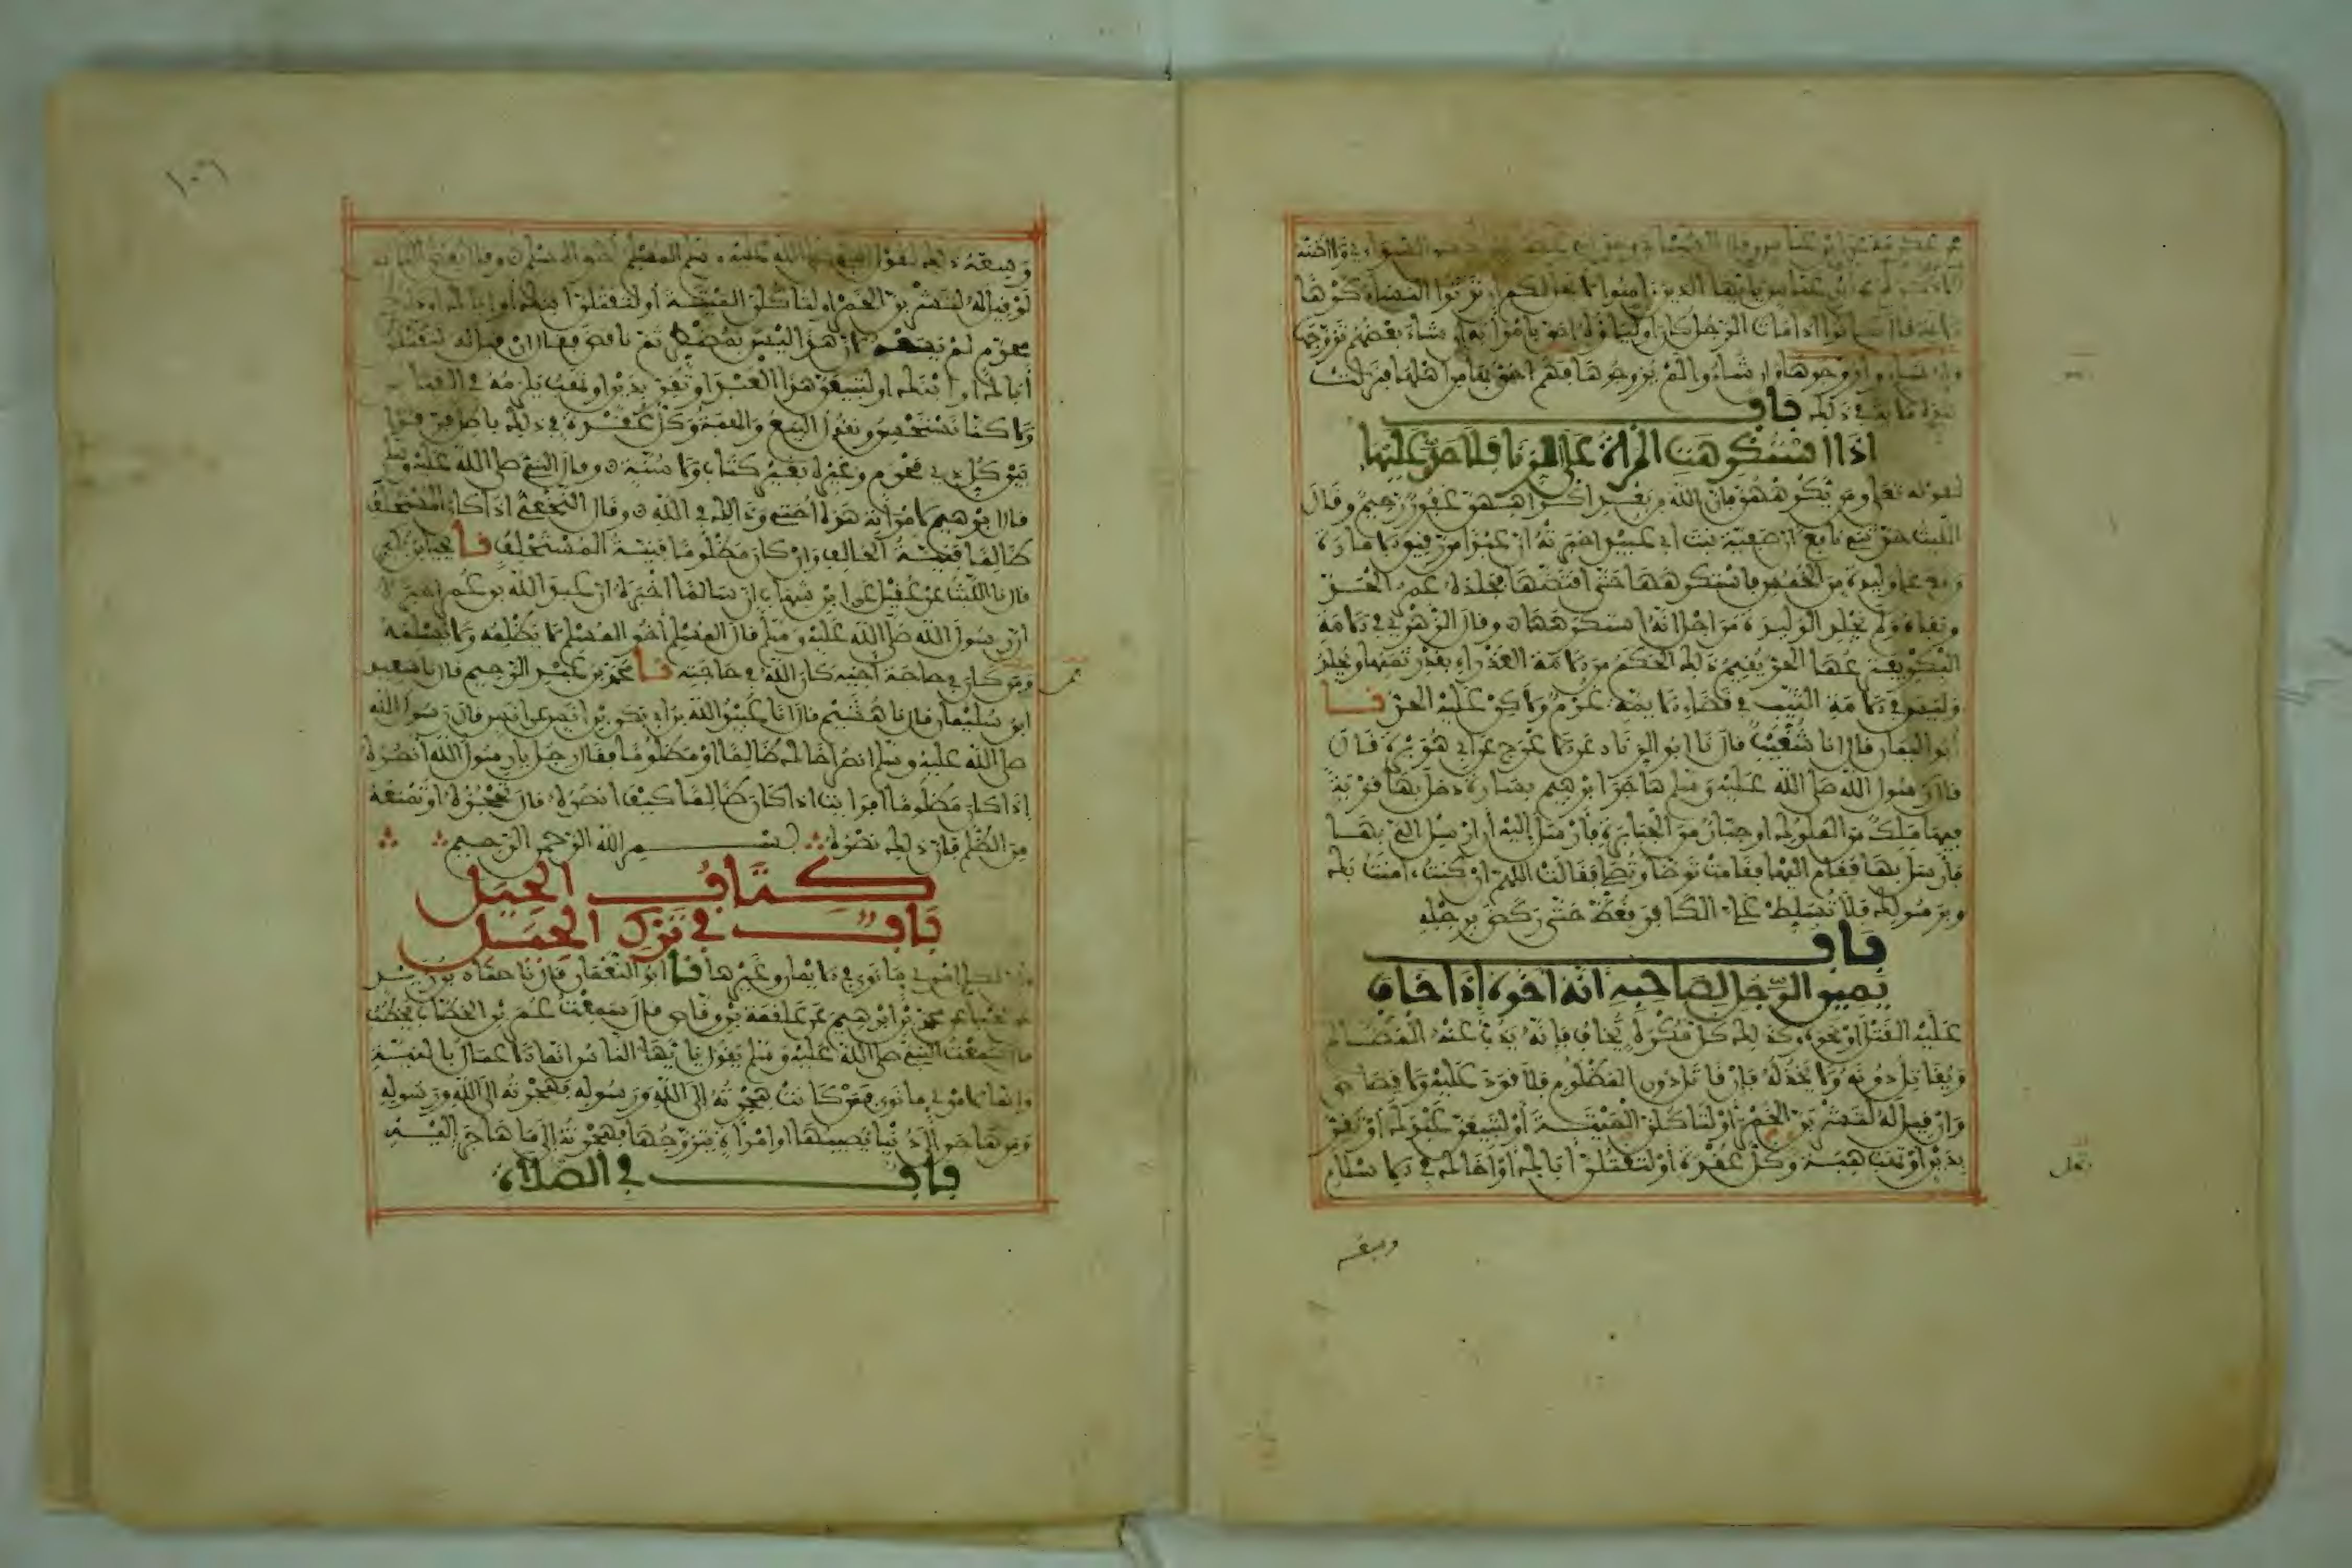 عكرمة عن ابن عباس وقال الشيباني وحدثني عطاء أبو الحسن السوائي ولا أظنه
الا ذكره عن ابن عباس يا أيها الذين آمنوا لا يحل لكم أن ترثوا النساء كرها
الآية قال كانوا إذا مات الرجل كان أولياؤه أحق بامرأته إن شاء بعضهم تزوجها
وإن شاءوا زوجوها وإن شاءوا لم يزوجوها فهم أحق بها من أهلها فنزلت
هذه الآية في ذلك باب
إذا استكرهت المرأة على الزنا فلا حد عليها
لقوله تعالى ومن يكرههن فإن الله من بعد إكراههن غفور رحيم وقال
الليث حدثني نافع أن صفية بنت أبي عبيد أخبرته أن عبدا من رقيق الإمارة
وقع على وليدة من الخمس فاستكرهها حتى افتضها فجلده عمر الحد
ونفاه ولم يجلد الوليدة من أجل أنه استكرهها وقال الزهري في الأمة
البكر يفترعها الحر يقيم ذلك الحكم من الأمة العذراء بقدر ثمنها ويجلد
وليس في الأمة الثيب في قضاء الأئمة غرم ولكن عليه الحد نا
أبو اليمان قال أنا شعيب قال نا أبو الزناد عن الأعرج عن أبي هريرة قال
قال رسول الله صلى الله عليه وسلم هاجر إبراهيم بسارة دخل بها قرية
فيها ملك من الملوك أو جبار من الجبابرة فأرسل إليه أن أرسل إلي بها
فأرسل بها فقام إليها فقامت توضأ وتصلي فقالت اللهم إن كنت آمنت بك
وبرسولك فلا تسلط علي الكافر فغط حتى ركض برجله
باب
يمين الرجل لصاحبه أنه أخوه إذا خاف
عليه القتل أو نحوه وكذلك كل مكره يخاف فإنه يذب عنه المظالم
ويقاتل دونه ولا يخذله فإن قاتل دون المظلوم فلا قود عليه ولا قصاص
وإن قيل له لتشربن الخمر أو لتأكلن الميتة أو لتبيعن عبدك أو تقر
بدين أو تهب هبة وكل عقدة أو لتقتلن أباك أو أخاك في الإسلام
وسعه
وسعه ذلك لقول النبي صلى الله عليه وسلم المسلم أخو المسلم وقال بعض الناس
لو قيل له لتشربن الخمر أو لتأكلن الميتة أو لتقتلن ابنك أو أباك أو ذا رحم
محرم لم يسعه لأن هذا ليس بمضطر ثم ناقض فقال إن قيل له لتقتلن
أباك أو ابنك أو لتبيعن هذا العبد أو تقر بدين أو تهب يلزمه في القياس
ولاكنا نستحسن ونقول البيع والهبة وكل عقدة في ذلك باطل فرقوا
بين كل ذي محرم وغيره بغير كتاب ولا سنة وقال النبي صلى الله عليه وسلم
قال إبراهيم لامرأته هذه أختي وذلك في الله وقال النخعي إذا كان المستحلف
ظالما فنية الحالف وإن كان مظلوما فنية المستحلف نا يحيى بن بكير
قال نا الليث عن عقيل عن ابن شهاب أن سالما أخبره أن عبد الله بن عمر أخبره
أن رسول الله صلى الله عليه وسلم قال المسلم أخو المسلم لا يظلمه ولا يسلمه
ومن كان في حاجة أخيه كان الله في حاجته نا محمد بن عبد الرحيم قال نا سعيد
ابن سليمان قال نا هشيم قال أنا عبيد الله بن أبي بكر بن أنس عن أنس قال رسول الله
صلى الله عليه وسلم انصر أخاك ظالما أو مظلوما فقال رجل يا رسول الله أنصره
إذا كان مظلوما أفرأيت إذا كان ظالما كيف أنصره قال تحجزه أو تمنعه
من الظلم فإن ذلك نصره بسم الله الرحمن الرحيم
كتاب الحيل
باب في ترك الحيل
وأن لكل امرئ ما نوى في الأيمان وغيرها نا أبو النعمان قال نا حماد بن زيد
عن يحيى عن محمد بن إبراهيم عن علقمة بن وقاص قال سمعت عمر بن الخطاب يخطب
قال سمعت النبي صلى الله عليه وسلم يقول يا أيها الناس إنما الأعمال بالنية
وإنما لامرئ ما نوى فمن كانت هجرته إلى الله ورسوله فهجرته إلى الله ورسوله
ومن هاجر إلى دنيا يصيبها أو امرأة يتزوجها فهجرته إلى ما هاجر إليه
باب في الصلاة
١٠٦